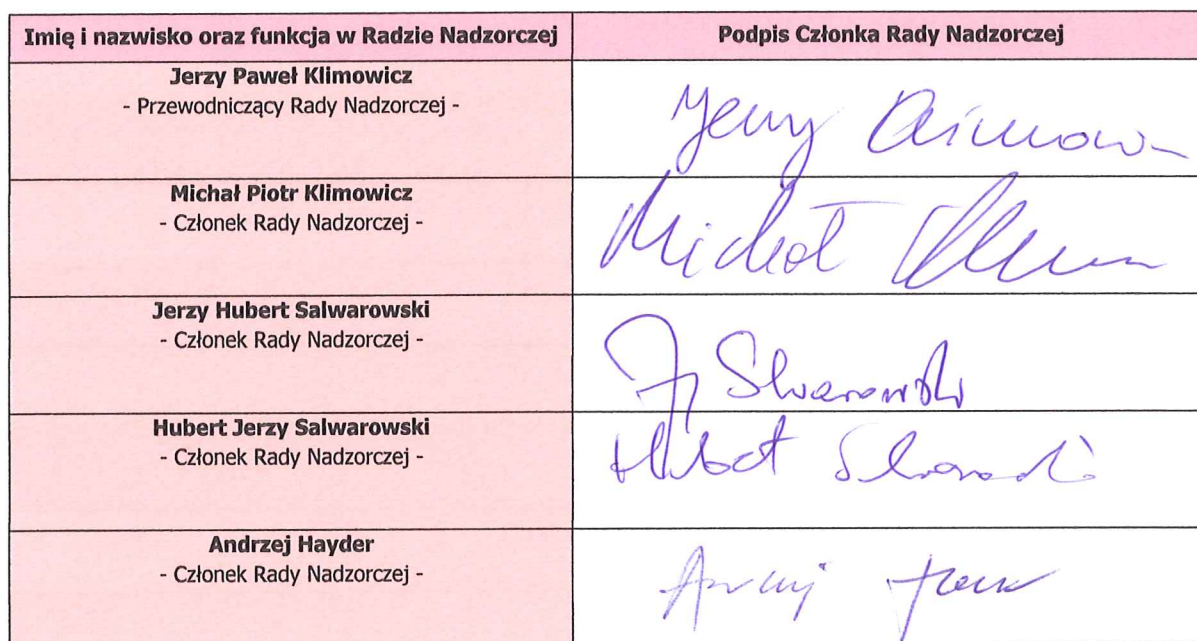 Imię i nazwisko oraz funkcja w Radzie Nadzorczej
Podpis Członka Rady Nadzorczej
Jerzy Paweł Klimowicz
- Przewodniczący Rady Nadzorczej -
Jerzy
Michał Piotr Klimowicz
- Członek Rady Nadzorczej -
Michał
Jerzy Hubert Salwarowski
- Członek Rady Nadzorczej -
Hubert Jerzy Salwarowski
- Członek Rady Nadzorczej -
Hubert
Andrzej Hayder
- Członek Rady Nadzorczej -